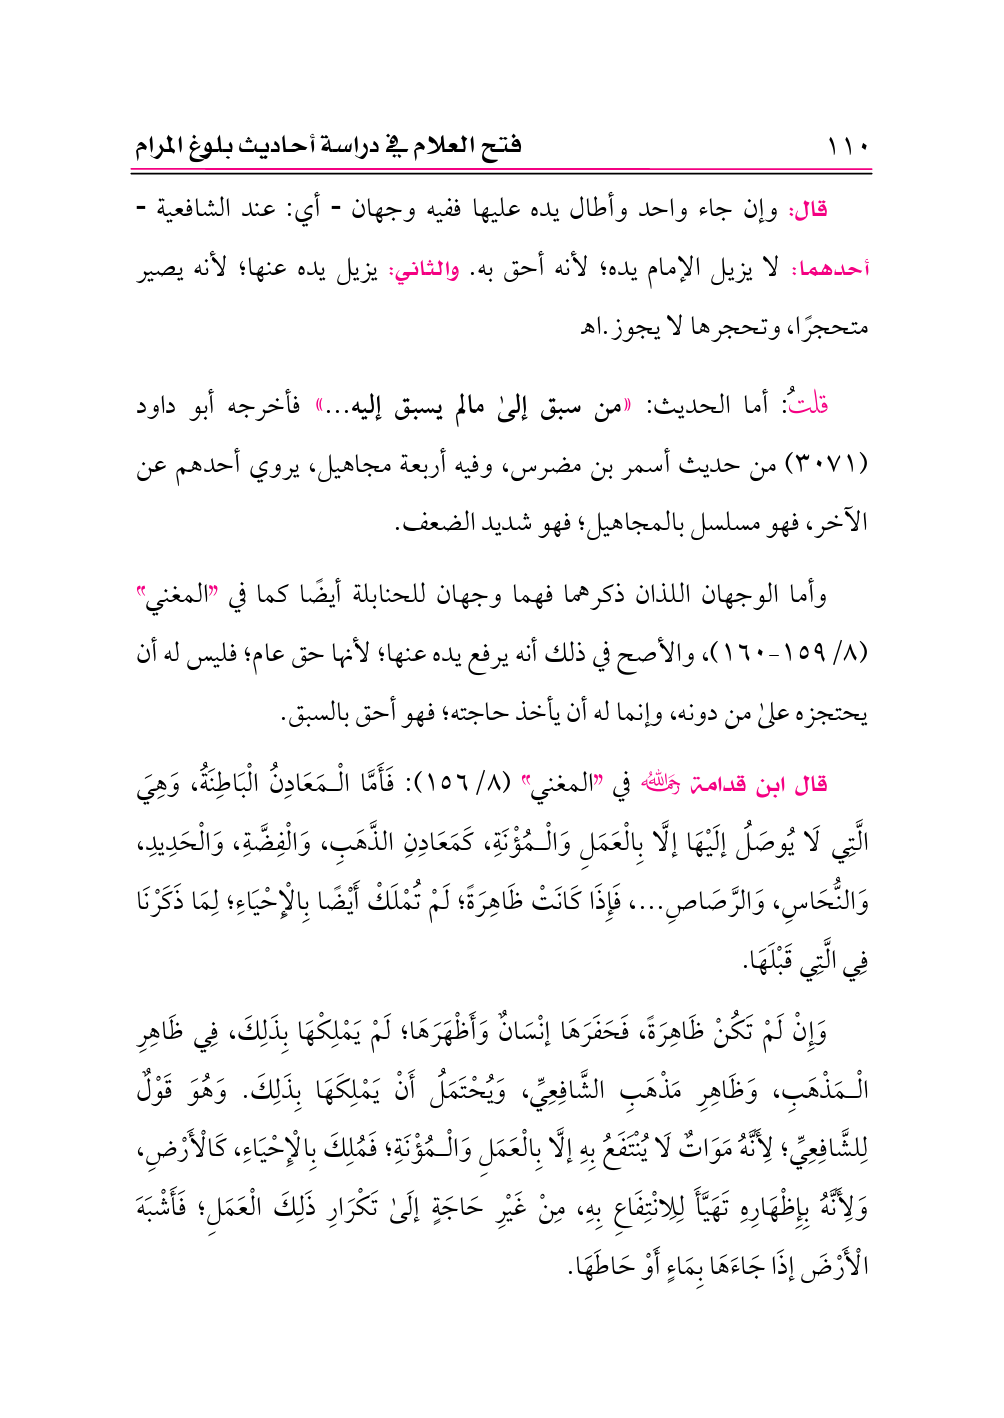 ١١٠ فتح العلام في دراسة أحاديث بلوغ المرام
قال: وإن جاء واحد وأطال يده عليها ففيه وجهان - أي: عند الشافعية -
أحدهما: لا يزيل الإمام يده؛ لأنه أحق به. والثاني: يزيل يده عنها؛ لأنه يصير
متحجرًا، وتحجرها لا يجوز.اهـ
قلتُ: أما الحديث: «من سبق إلىٰ مالم يسبق إليه...» فأخرجه أبو داود
(٣٠٧١) من حديث أسمر بن مضرس، وفيه أربعة مجاهيل، يروي أحدهم عن
الآخر، فهو مسلسل بالمجاهيل؛ فهو شديد الضعف.
وأما الوجهان اللذان ذكرهما فهما وجهان للحنابلة أيضًا كما في "المغني"
(٨/ ١٥٩-١٦٠)، والأصح في ذلك أنه يرفع يده عنها؛ لأنها حق عام؛ فليس له أن
يحتجزه علىٰ من دونه، وإنما له أن يأخذ حاجته؛ فهو أحق بالسبق.
قال ابن قدامة رحمه الله في "المغني" (٨/ ١٥٦): فَأَمَّا الْـمَعَادِنُ الْبَاطِنَةُ، وَهِيَ
الَّتِي لَا يُوصَلُ إلَيْهَا إلَّا بِالْعَمَلِ وَالْـمُؤْنَةِ، كَمَعَادِنِ الذَّهَبِ، وَالْفِضَّةِ، وَالْحَدِيدِ،
وَالنُّحَاسِ، وَالرَّصَاصِ...، فَإِذَا كَانَتْ ظَاهِرَةً؛ لَمْ تُمْلَكْ أَيْضًا بِالْإِحْيَاءِ؛ لِمَا ذَكَرْنَا
فِي الَّتِي قَبْلَهَا.
وَإِنْ لَمْ تَكُنْ ظَاهِرَةً، فَحَفَرَهَا إنْسَانٌ وَأَظْهَرَهَا؛ لَمْ يَمْلِكْهَا بِذَلِكَ، فِي ظَاهِرِ
الْـمَذْهَبِ، وَظَاهِرِ مَذْهَبِ الشَّافِعِيِّ، وَيُحْتَمَلُ أَنْ يَمْلِكَهَا بِذَلِكَ. وَهُوَ قَوْلٌ
لِلشَّافِعِيِّ؛ لِأَنَّهُ مَوَاتٌ لَا يُنْتَفَعُ بِهِ إلَّا بِالْعَمَلِ وَالْـمُؤْنَةِ؛ فَمُلِكَ بِالْإِحْيَاءِ، كَالْأَرْضِ،
وَلِأَنَّهُ بِإِظْهَارِهِ تَهَيَّأَ لِلِانْتِفَاعِ بِهِ، مِنْ غَيْرِ حَاجَةٍ إلَىٰ تَكْرَارِ ذَلِكَ الْعَمَلِ؛ فَأَشْبَهَ
الْأَرْضَ إذَا جَاءَهَا بِمَاءٍ أَوْ حَاطَهَا.